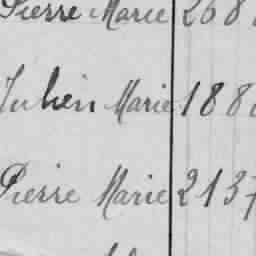 Pierre Marie 268
Julien Marie 188
Pierre Marie 2137